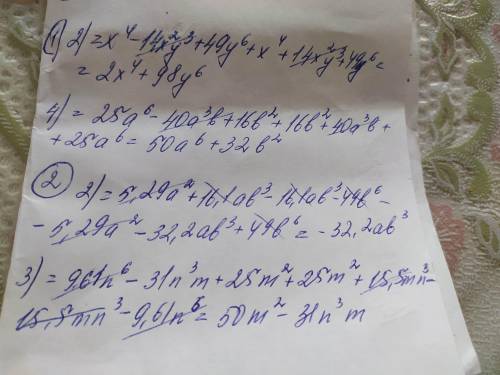 ① 2) = x⁴ - 14x²y³ + 49y⁶ + x⁴ + 14x²y³ + 49y⁶ =
= 2x⁴ + 98y⁶
4) = 25a⁶ - 40a³b + 16b² + 16b² + 40a³b +
+ 25a⁶ = 50a⁶ + 32b²
② 2) = 5,29a² + 16,1ab³ - 16,1ab³ - 49b⁶ -
- 5,29a² - 32,2ab³ + 49b⁶ = -32,2ab³
3) = 9,61n⁶ - 31n³m + 25m² + 25m² + 15,5mn³ -
15,5mn³ - 9,61n⁶ = 50m² - 31n³m